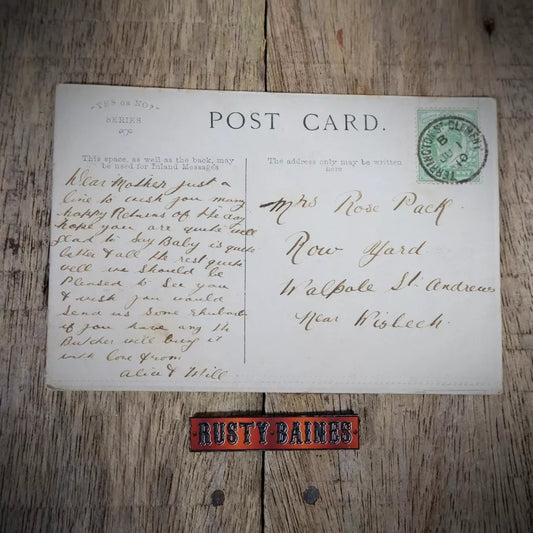 "YES OR NO?"
SERIES
POST CARD.
This space, as well as the back, may
be used for Inland Messages
The address only may be written
here
TERRINGTON ST CLEMENT
B
JU 1
10
Dear Mother Just a
line to wish you many
happy Returns of the day
hope you are quite well
glad to Say Baby is quite
better & all the rest quite
well we Should be
Pleased to See you
& wish you would
Send us Some Rhubarb
if you have any the
Butcher will bring it
with love from
Alice & Will
Mrs Rose Pack.
Row Yard
Walpole St. Andrews
Near Wisbech.
RUSTY BAINES